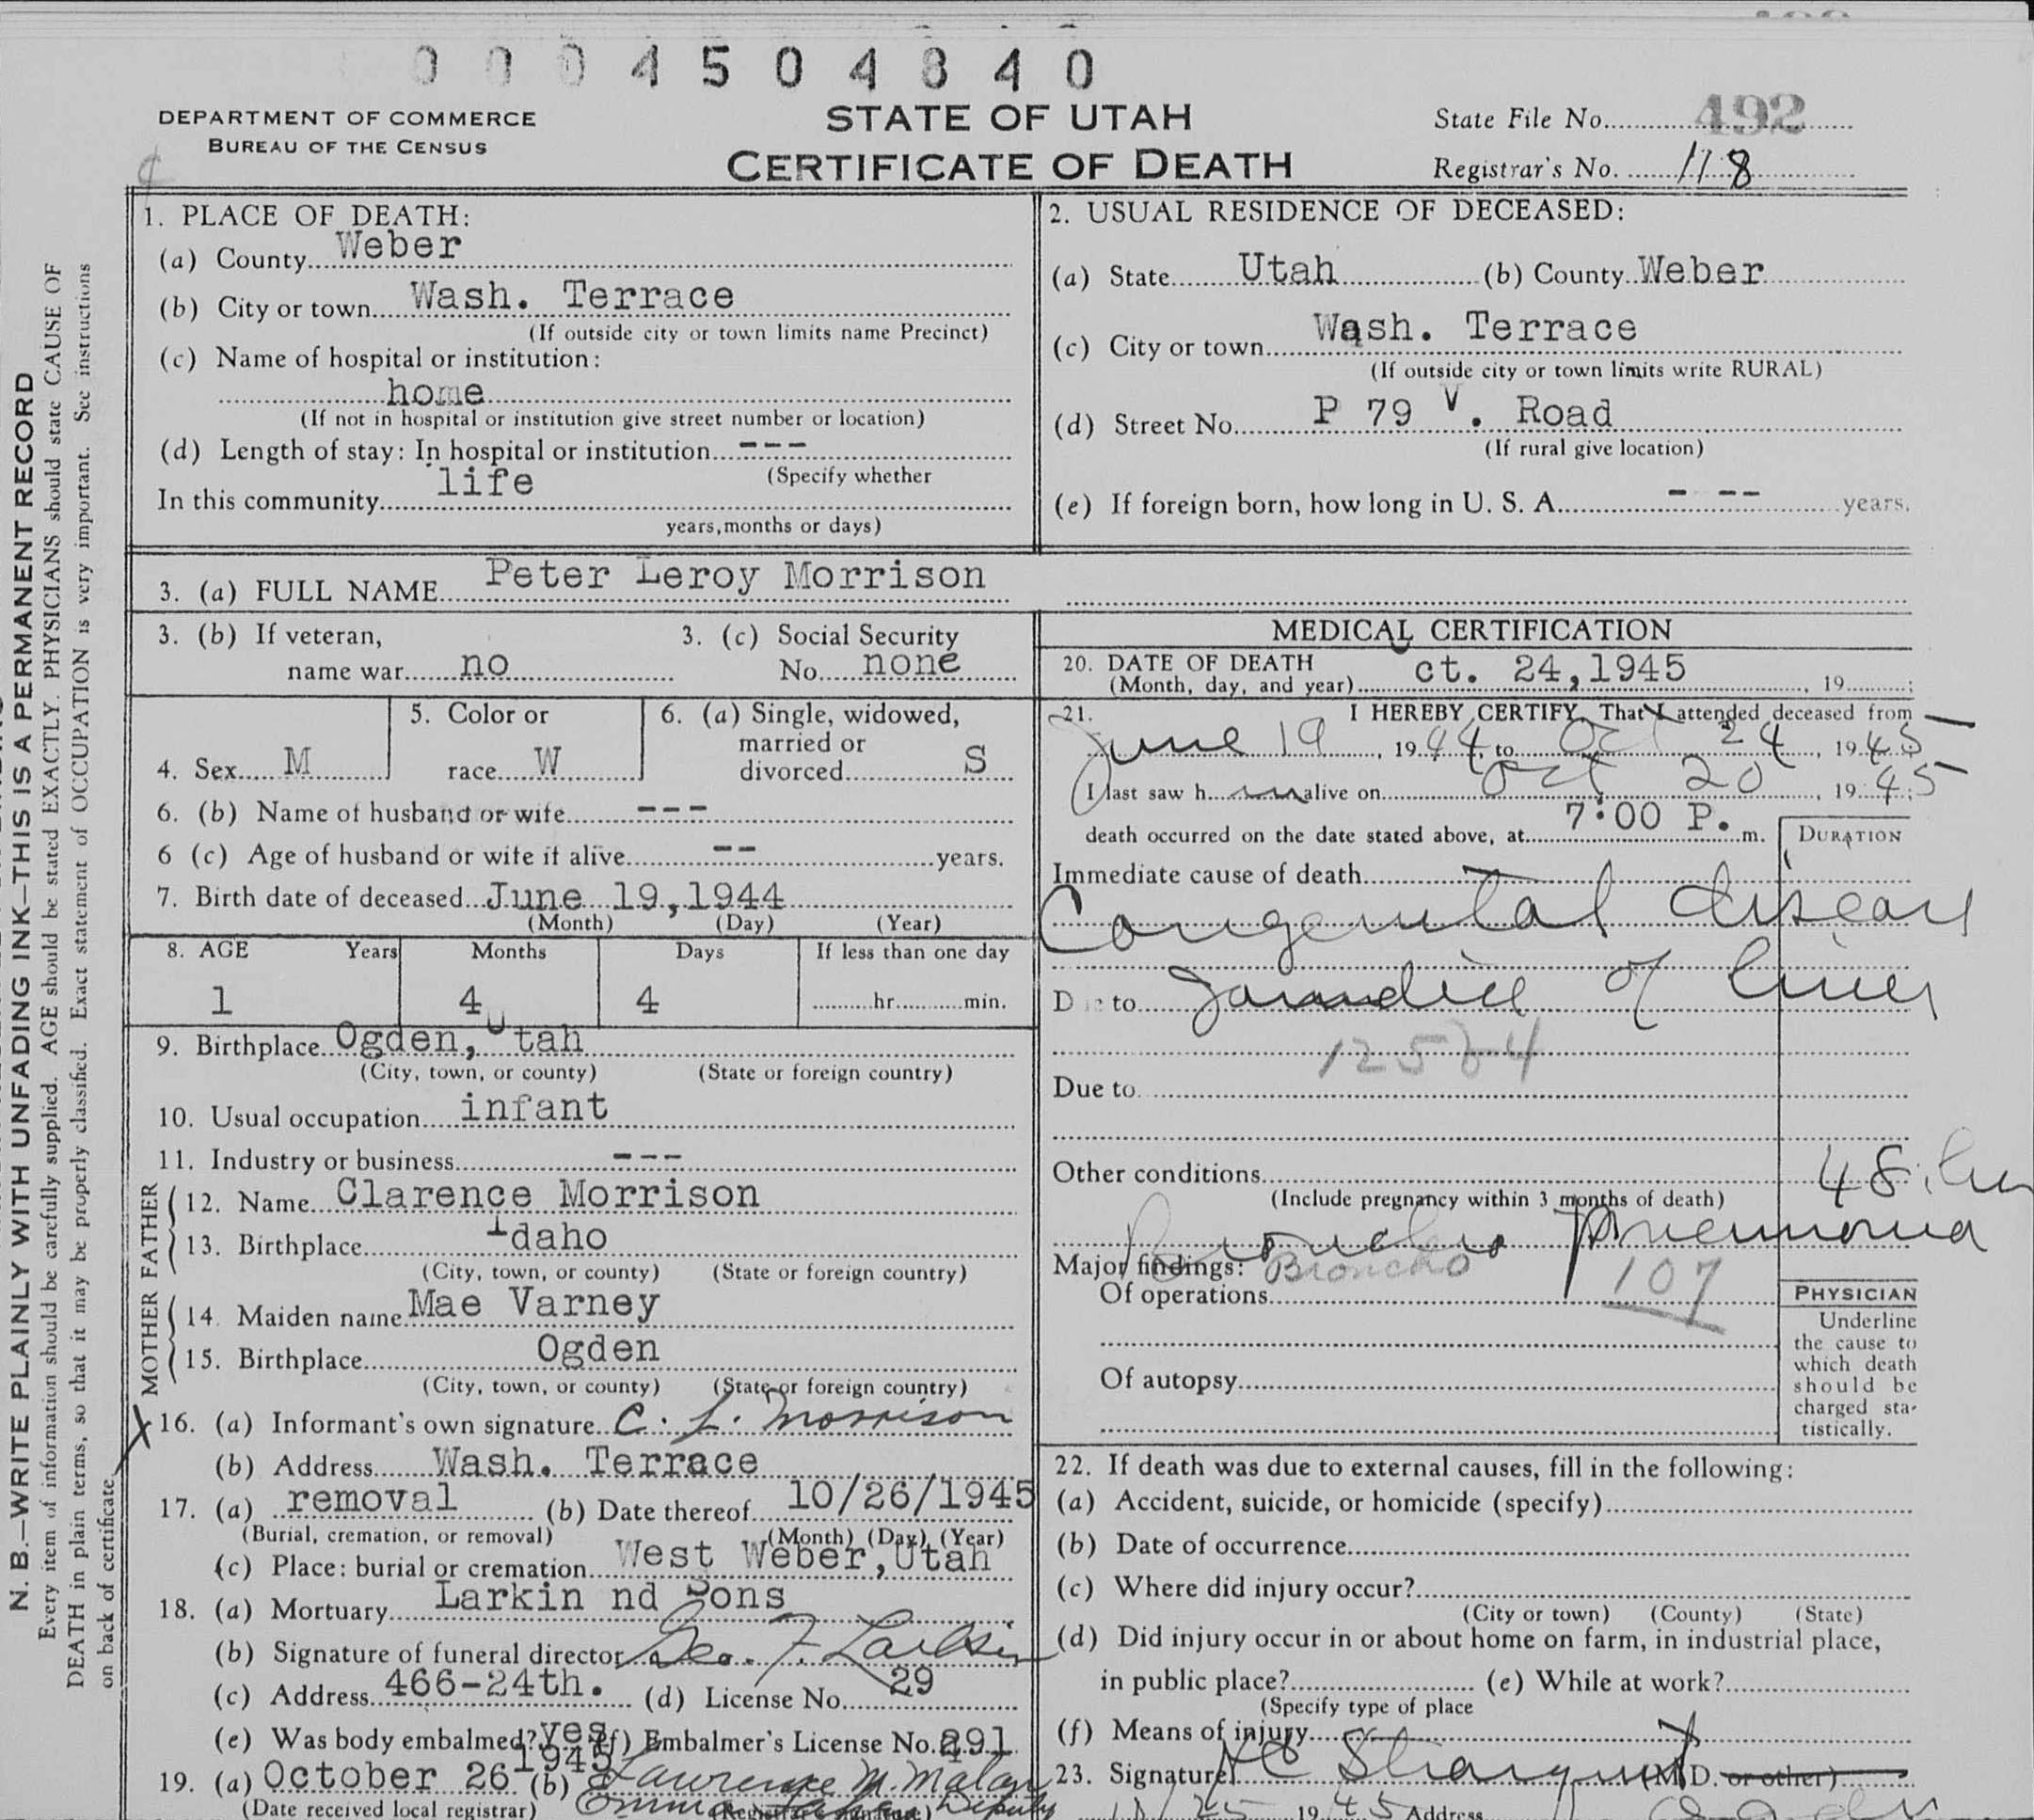 0 0 0 4 5 0 4 8 4 0
DEPARTMENT OF COMMERCE
BUREAU OF THE CENSUS
STATE OF UTAH
CERTIFICATE OF DEATH
State File No. 492
Registrar's No. 118
N. B.—WRITE PLAINLY WITH UNFADING INK—THIS IS A PERMANENT RECORD
Every item of information should be carefully supplied. AGE should be stated EXACTLY. PHYSICIANS should state CAUSE OF
DEATH in plain terms, so that it may be properly classified. Exact statement of OCCUPATION is very important. See instructions
on back of certificate.
1. PLACE OF DEATH:
(a) County Weber
(b) City or town Wash. Terrace
(If outside city or town limits name Precinct)
(c) Name of hospital or institution:
home
(If not in hospital or institution give street number or location)
(d) Length of stay: In hospital or institution ---
(Specify whether
In this community life
years, months or days)
2. USUAL RESIDENCE OF DECEASED:
(a) State Utah (b) County Weber
(c) City or town Wash. Terrace
(If outside city or town limits write RURAL)
(d) Street No. P 79 V. Road
(If rural give location)
(e) If foreign born, how long in U. S. A. - -- years.
3. (a) FULL NAME Peter Leroy Morrison
3. (b) If veteran,
name war no
3. (c) Social Security
No. none
4. Sex M
5. Color or
race W
6. (a) Single, widowed,
married or
divorced S
6. (b) Name of husband or wife ---
6 (c) Age of husband or wife if alive -- years.
7. Birth date of deceased June 19,1944
(Month) (Day) (Year)
8. AGE Years Months Days If less than one day
1 4 4 hr. min.
9. Birthplace Ogden, Utah
(City, town, or county) (State or foreign country)
10. Usual occupation infant
11. Industry or business ---
FATHER
12. Name Clarence Morrison
13. Birthplace Idaho
(City, town, or county) (State or foreign country)
MOTHER
14. Maiden name Mae Varney
15. Birthplace Ogden
(City, town, or county) (State or foreign country)
X 16. (a) Informant's own signature C. L. Morrison
(b) Address Wash. Terrace
17. (a) removal (b) Date thereof 10/26/1945
(Burial, cremation, or removal) (Month) (Day) (Year)
(c) Place: burial or cremation West Weber,Utah
18. (a) Mortuary Larkin nd Sons
(b) Signature of funeral director Geo. F. Larkin
(c) Address 466-24th. (d) License No. 29
(e) Was body embalmed? yes (f) Embalmer's License No. 291
19. (a) October 26 1945 (b) Lawrence M. Malan
(Date received local registrar) Emma Deputy
MEDICAL CERTIFICATION
20. DATE OF DEATH ct. 24,1945
(Month, day, and year) , 19 ;
21. I HEREBY CERTIFY, That I attended deceased from
June 19, 1944, to Oct 24, 1945
I last saw h im alive on Oct 20, 1945;
death occurred on the date stated above, at 7:00 P. m.
DURATION
Immediate cause of death
Congenital disease
Due to Jaundice of liver
12564
Due to
Other conditions 48
(Include pregnancy within 3 months of death)
Broncho Pneumonia
Major findings: Broncho
107
Of operations
Of autopsy
PHYSICIAN
Underline
the cause to
which death
should be
charged sta-
tistically.
22. If death was due to external causes, fill in the following:
(a) Accident, suicide, or homicide (specify)
(b) Date of occurrence
(c) Where did injury occur?
(City or town) (County) (State)
(d) Did injury occur in or about home on farm, in industrial place,
in public place? (e) While at work?
(Specify type of place
(f) Means of injury
23. Signature (M.D. or other)
25 1945 Address